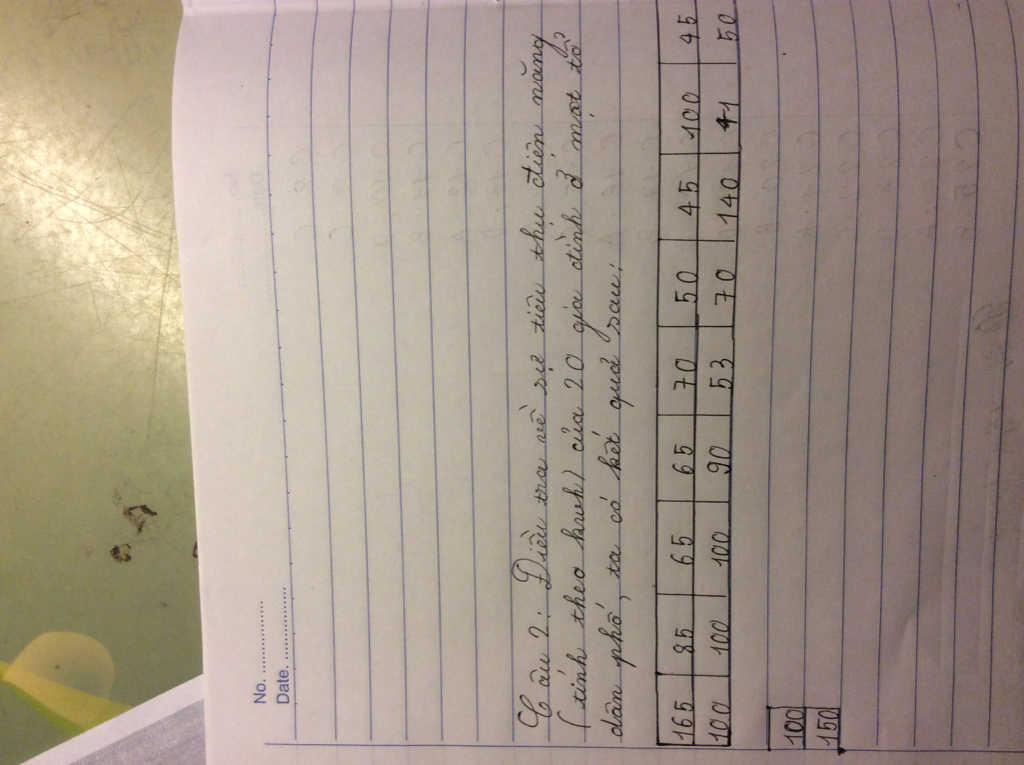 No. ..................
Date. ..................
Câu 2: Điều tra về sự tiêu thụ điện năng
(tính theo kwh) của 20 gia đình ở một tổ
dân phố, ta có kết quả sau:
165 85 65 65 70 50 45 100 45
100 100 100 90 53 70 140 41 50
100
150